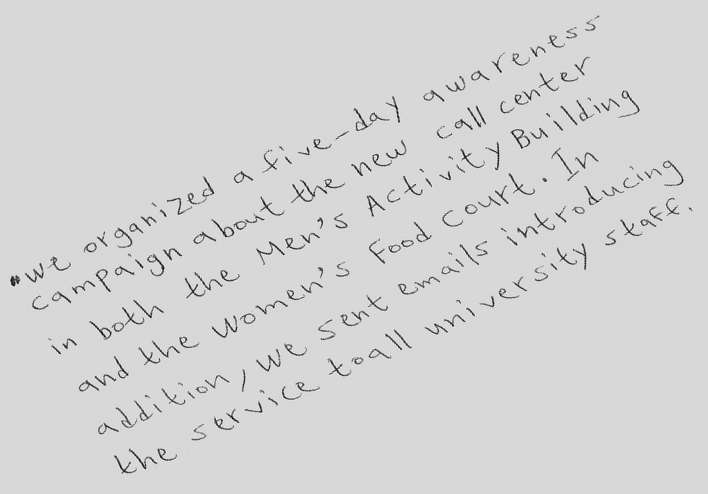 "we organized a five-day awareness
campaign about the new call center
in both the Men's Activity Building
and the Women's Food Court. In
addition, we sent emails introducing
the service toall university staff.